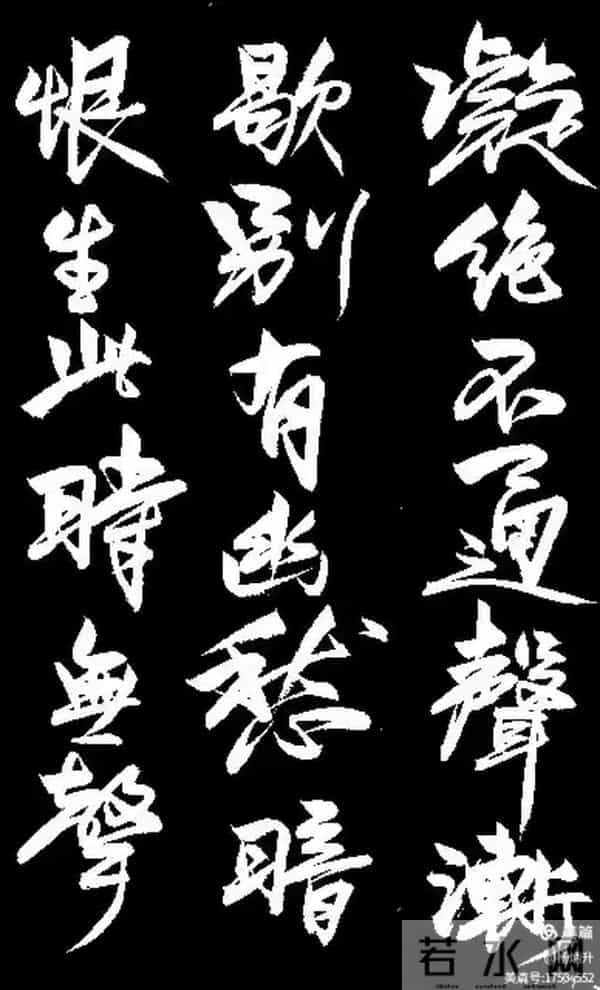 凝絶不通聲漸
歇别有幽愁暗
恨生此時無聲
美篇
美篇号:17504552
若水网